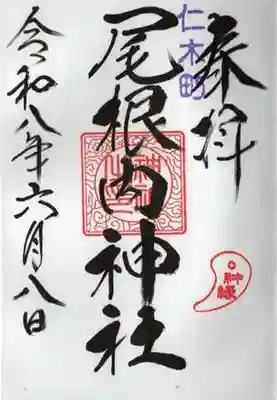 奉拝
仁木町
尾根内神社
令和八年六月八日